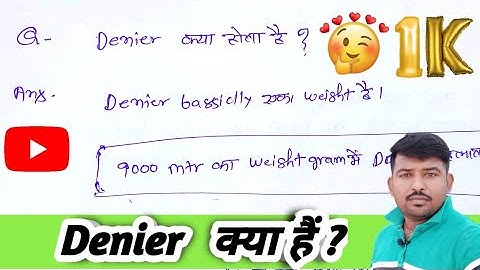 Q- Denier क्या होता है ?
1K
Ans. Denier bassiclly एका weight है ।
9000 mtr का weight gram में
Denier क्या हैं ?